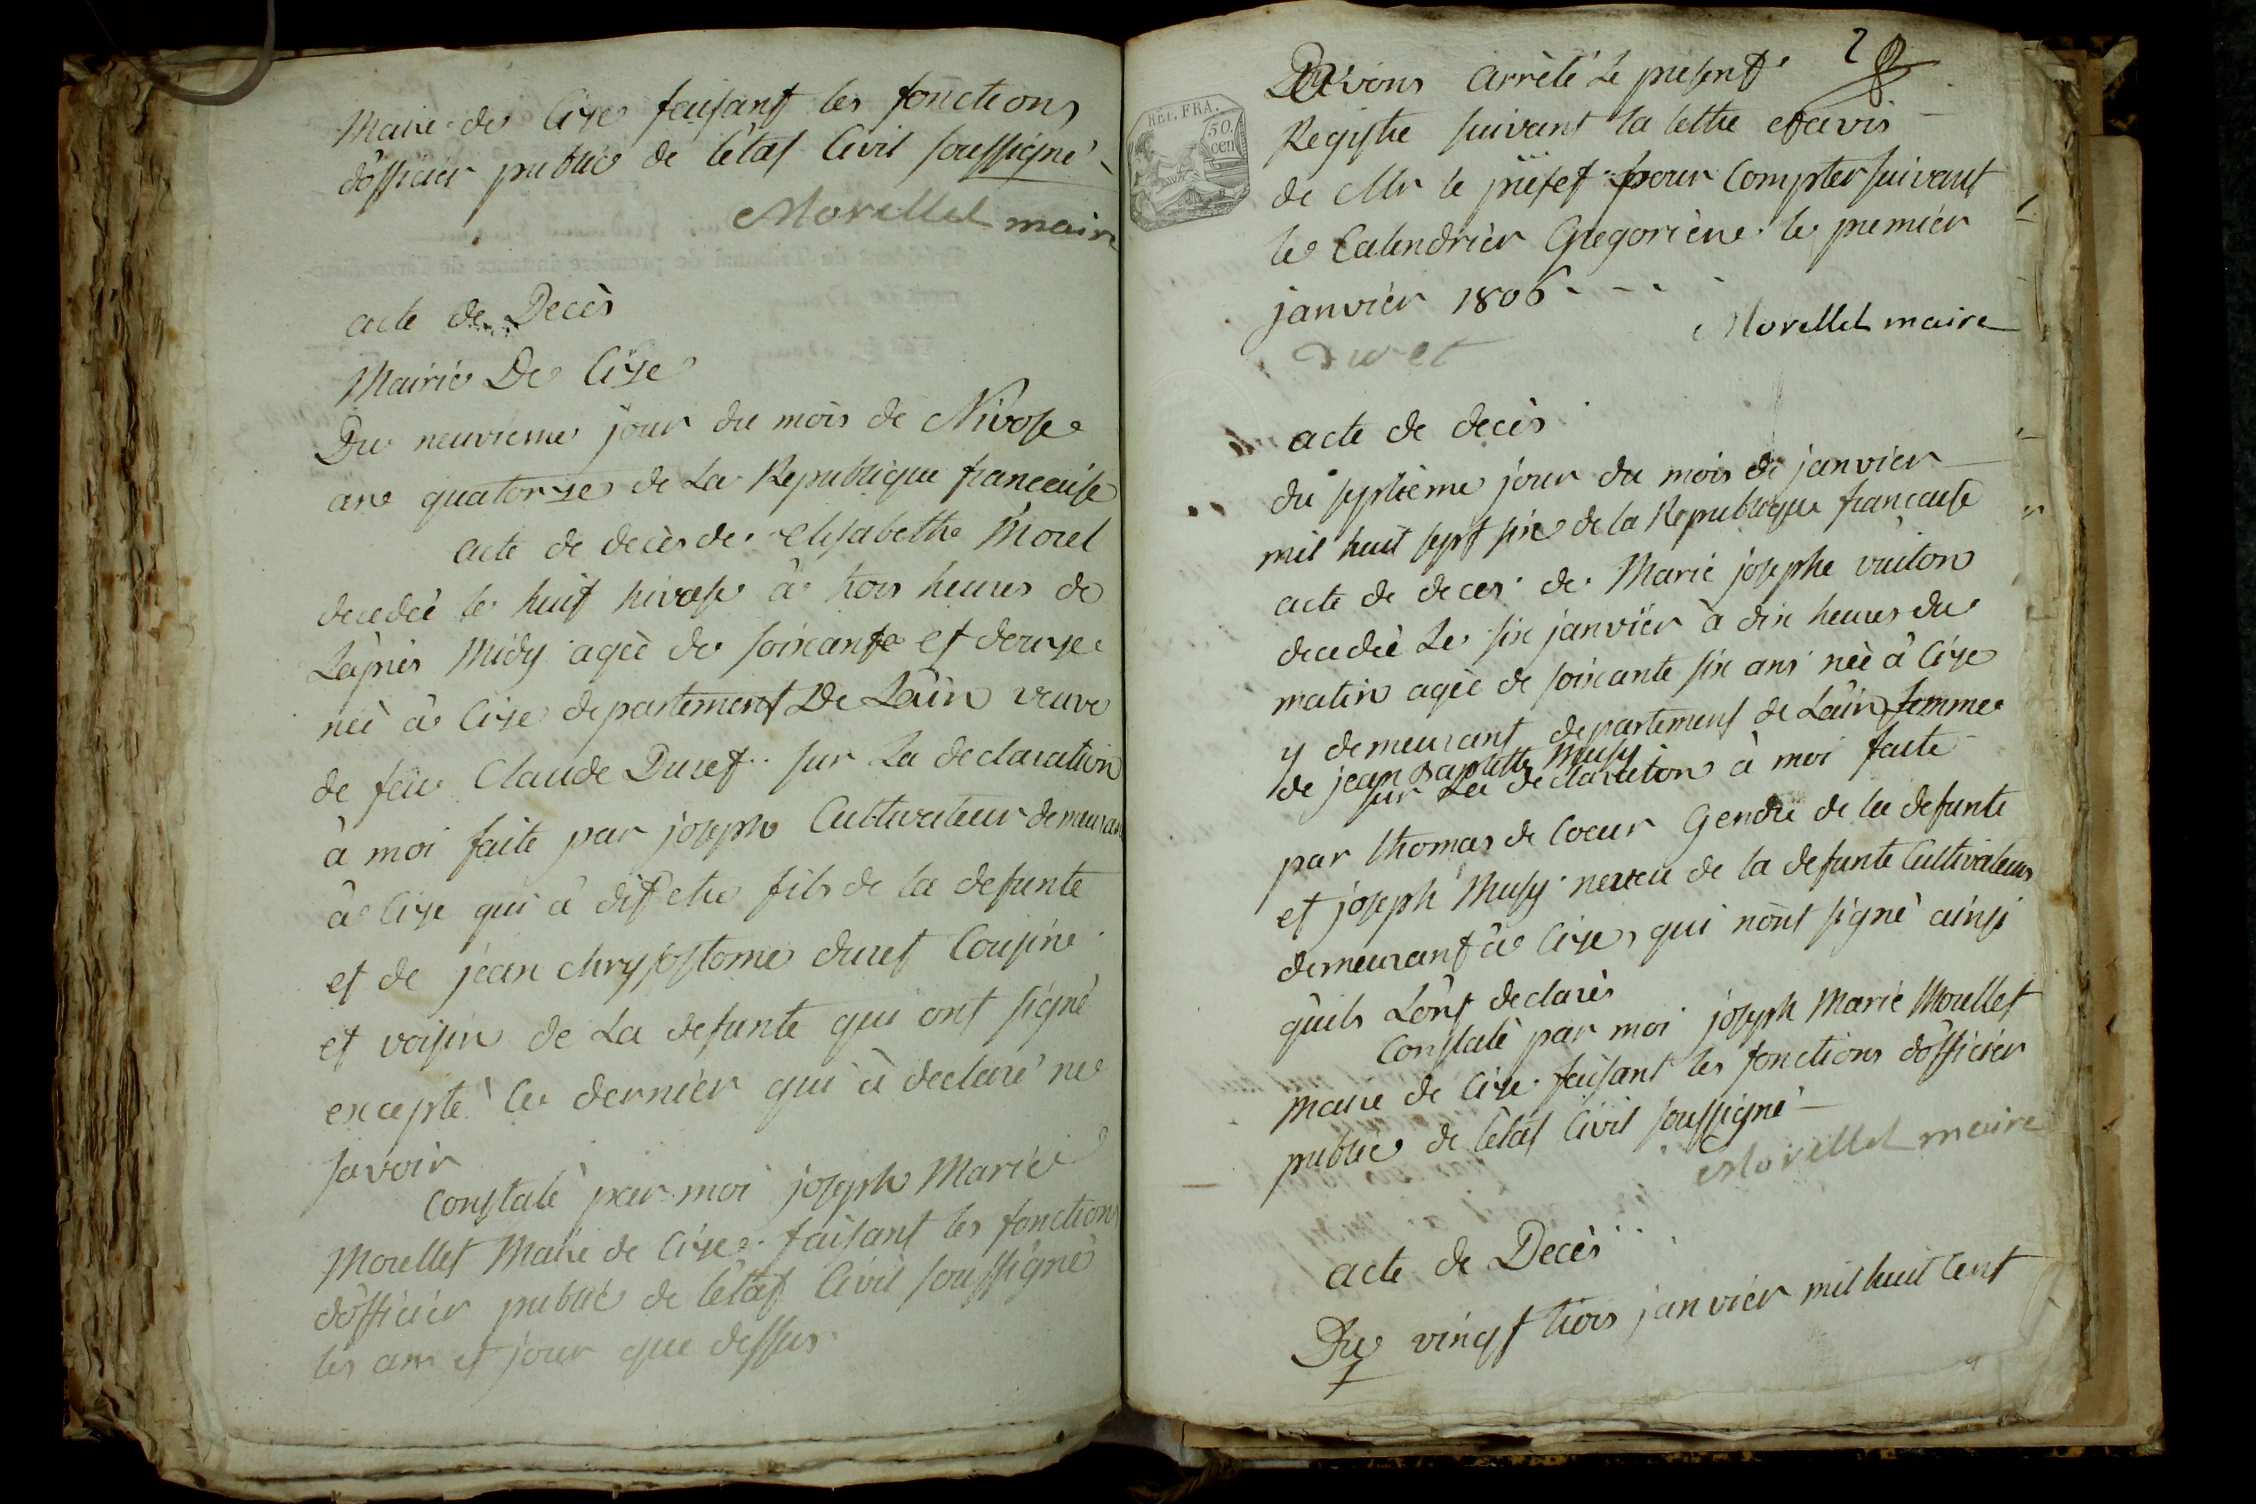 Maire de Cize faisant les fonctions
d'officier public de l'êtat Civil soussigné
Morellet maire
acte de Decès
Mairie De Cize
Du neuvieme jour du mois de Nivose
an quatorze de La Republique francaise
acte de decès de elisabeth Morel
decedeè le huit nivose à trois heures de
Lapres Midy ageè de soixante et douze
neè à Cize departement De Lâin veuve
de feu Claude Duret sur La declaration
à moi faite par joseph Cultivateur demeurant
à Cize qui à dit etre fils de la defunte
et de jean chrysostome duret Cousin
et voisin de La defunte qui ont signé
excepté le dernier qui à declaré ne
savoir
Constaté par moi joseph Marie
Morellet Maire de Cize faisant les fonctions
d'officier public de l'êtat Civil soussigné
les an et jour que dessus
2
avons arrêté le present
Registre suivant la lettre et avis
de Mr le prèfet pour Compter suivant
le Calendrier Gregorien le premier
janvier 1806
Morellet maire
Duret
RÉP. FRA.
50.
cen
acte de decès
du septième jour du mois de janvier
mil huit sept six de la Republique francaise
acte de deces de Marie josephe vuiton
decedeè Le six janvier à dix heures du
matin ageè de soixante six ans neè à Cize
y demeurant departement de Lâin femme
de jean baptiste Musy
sur La declaration à moi faite
par thomas de Coeur Gendre de la defunte
et joseph Musy neveu de la defunte Cultivateurs
demeurant à Cize, qui n'ont signé ainsi
qu'ils L'ont declarés
Constaté par moi joseph Marie Morellet
Maire de Cize faisant les fonctions d'officier
public de l'êtat Civil soussigné
Morellet maire
acte de Decès
Du vingt trois janvier mil huit Cent